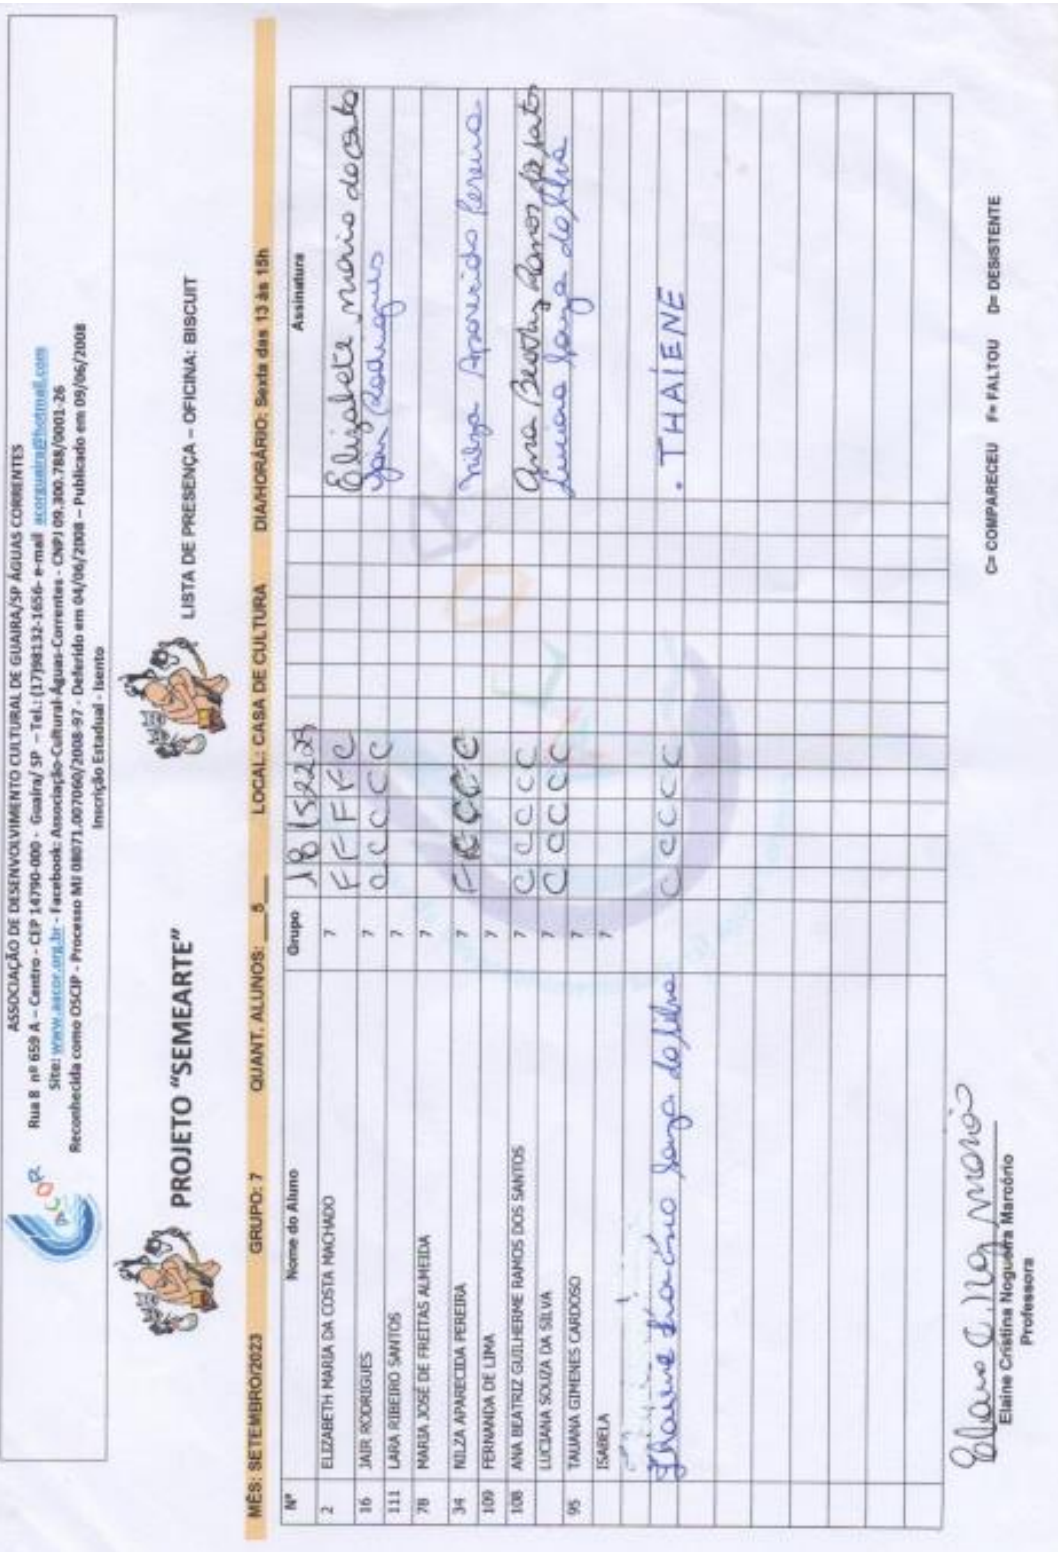 ASSOCIAÇÃO DE DESENVOLVIMENTO CULTURAL DE GUAIRA/SP ÁGUAS CORRENTES
Rua 8 nº 659 A – Centro - CEP 14790-000 - Guaíra/ SP – Tel.: (17)98132-1656- e-mail acorguaira@hotmail.com
Site: www.aacor.org.br - Facebook: Associação-Cultural-Águas-Correntes - CNPJ 09.300.788/0001-26
Reconhecida como OSCIP - Processo MJ 08071.007060/2008-97 - Deferido em 04/06/2008 – Publicado em 09/06/2008
Inscrição Estadual - Isento
ACOR
PROJETO “SEMEARTE” LISTA DE PRESENÇA – OFICINA: BISCUIT
MÊS: SETEMBRO/2023 GRUPO: 7 QUANT. ALUNOS: __5__ LOCAL: CASA DE CULTURA DIA/HORÁRIO: Sexta das 13 às 15h
Nº Nome do Aluno Grupo 1 8 15 22 29 Assinatura
2 ELIZABETH MARIA DA COSTA MACHADO 7 F F F F C Elizabete maria da costa
16 JAIR RODRIGUES 7 C C C C C Jair Rodrigues
111 LARA RIBEIRO SANTOS 7
78 MARIA JOSÉ DE FREITAS ALMEIDA 7
34 NILZA APARECIDA PEREIRA 7 F C C C C Nilza Aparecida Pereira
109 FERNANDA DE LIMA 7
108 ANA BEATRIZ GUILHERME RAMOS DOS SANTOS 7 C C C C C Ana Beatriz Ramos
LUCIANA SOUZA DA SILVA 7 C C C C C Luciana Souza da Silva
95 TAUANA GIMENES CARDOSO 7
ISABELA 7
Souza da Silva C C C C C . THAIENE
C= COMPARECEU F= FALTOU D= DESISTENTE
Elaine C. Nog
Elaine Cristina Nogueira Marcório
Professora